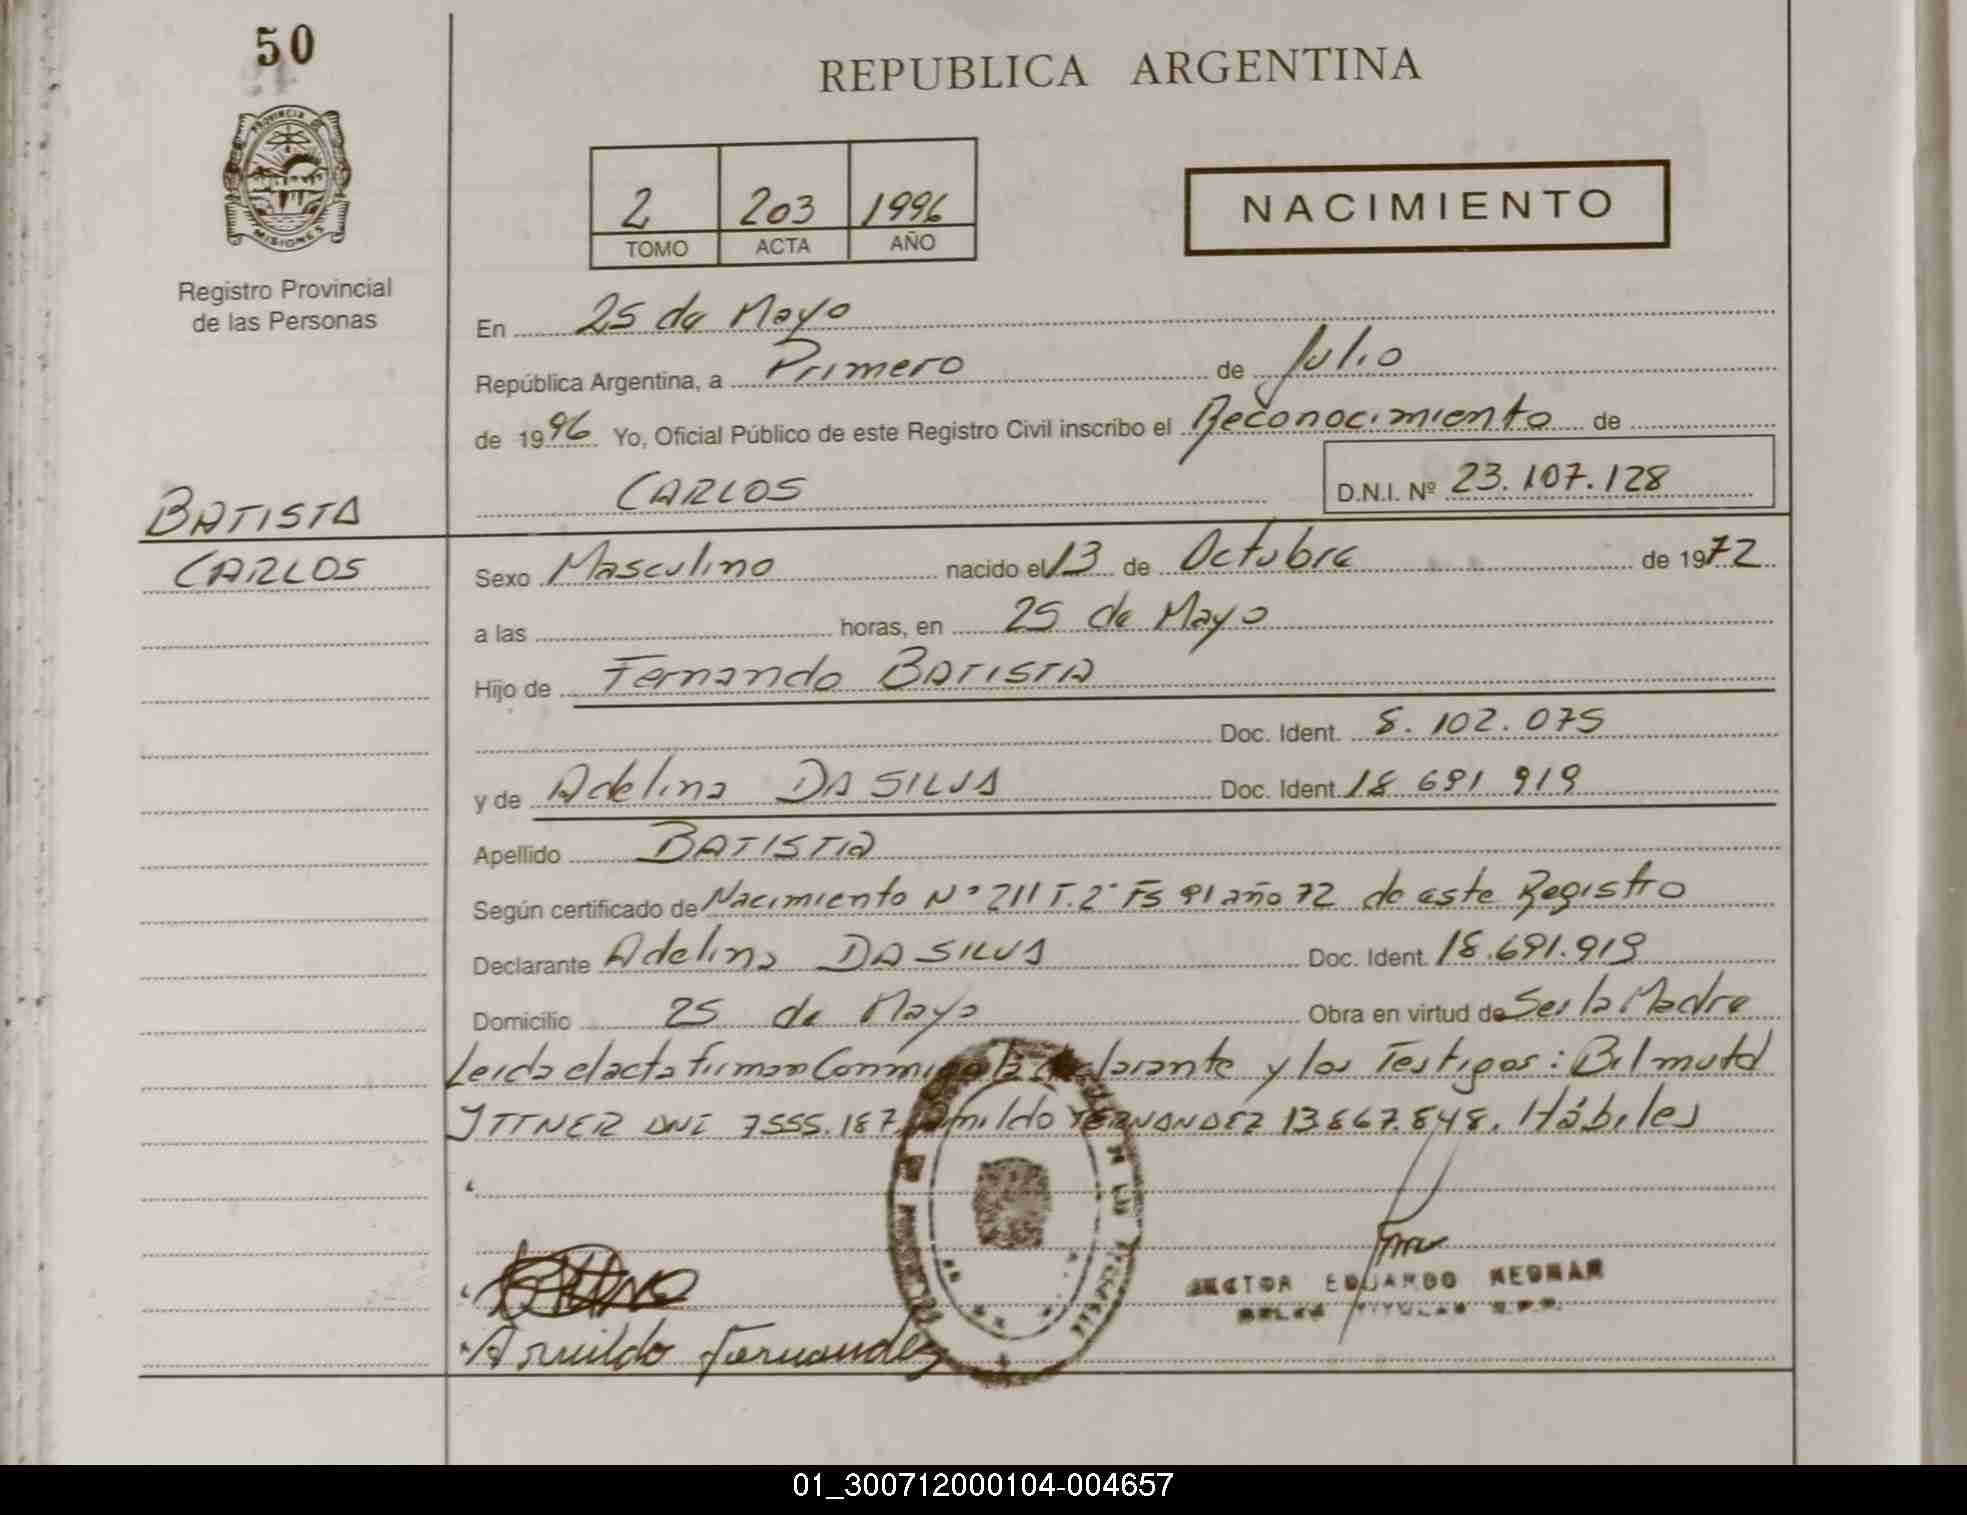 50
REPUBLICA ARGENTINA
PROVINCIA DE
MISIONES
Registro Provincial
de las Personas
2 203 1996
TOMO ACTA AÑO
NACIMIENTO
En 25 de Mayo
República Argentina, a Primero de Julio
de 1996 Yo, Oficial Público de este Registro Civil inscribo el Reconocimiento de
CARLOS D.N.I. Nº 23.107.128
BATISTA
CARLOS
Sexo Masculino nacido el 13 de Octubre de 1972
a las horas, en 25 de Mayo
Hijo de Fernando BATISTA
Doc. Ident. 8.102.075
y de Adelina DA SILVA Doc. Ident. 18 691 919
Apellido BATISTA
Según certificado de Nacimiento Nº 211 T.2º Fs 91 año 72 de este Registro
Declarante Adelina DA SILVA Doc. Ident. 18.691.919
Domicilio 25 de Mayo Obra en virtud de Ser la Madre
Leida el acta firman Conmigo la declarante y los Testigos: Bilmuth
ITTNER DNI 7555.187 Arnildo FERNANDEZ 13867.848. Hábiles
HECTOR EDUARDO
TITULAR
Arnildo Fernandez
01_300712000104-004657